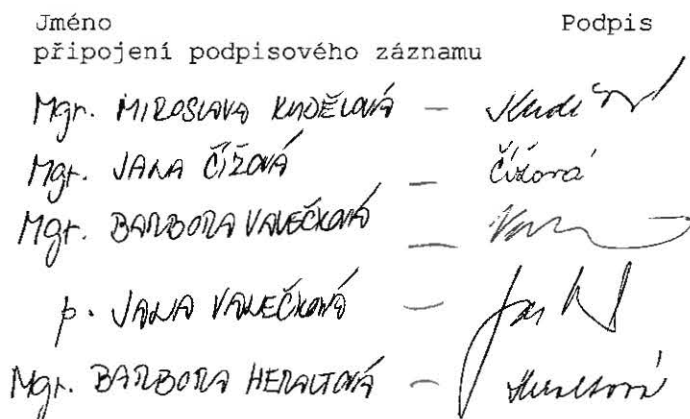 Jméno Podpis
připojení podpisového záznamu
Mgr. MIROSLAVA KUDĚLOVÁ –
Mgr. JANA ČÍŽOVÁ – Čížová
Mgr. BARBORA VALEČKOVÁ –
p. JANA VALEČKOVÁ –
Mgr. BARBORA HERALTOVÁ – Heraltová